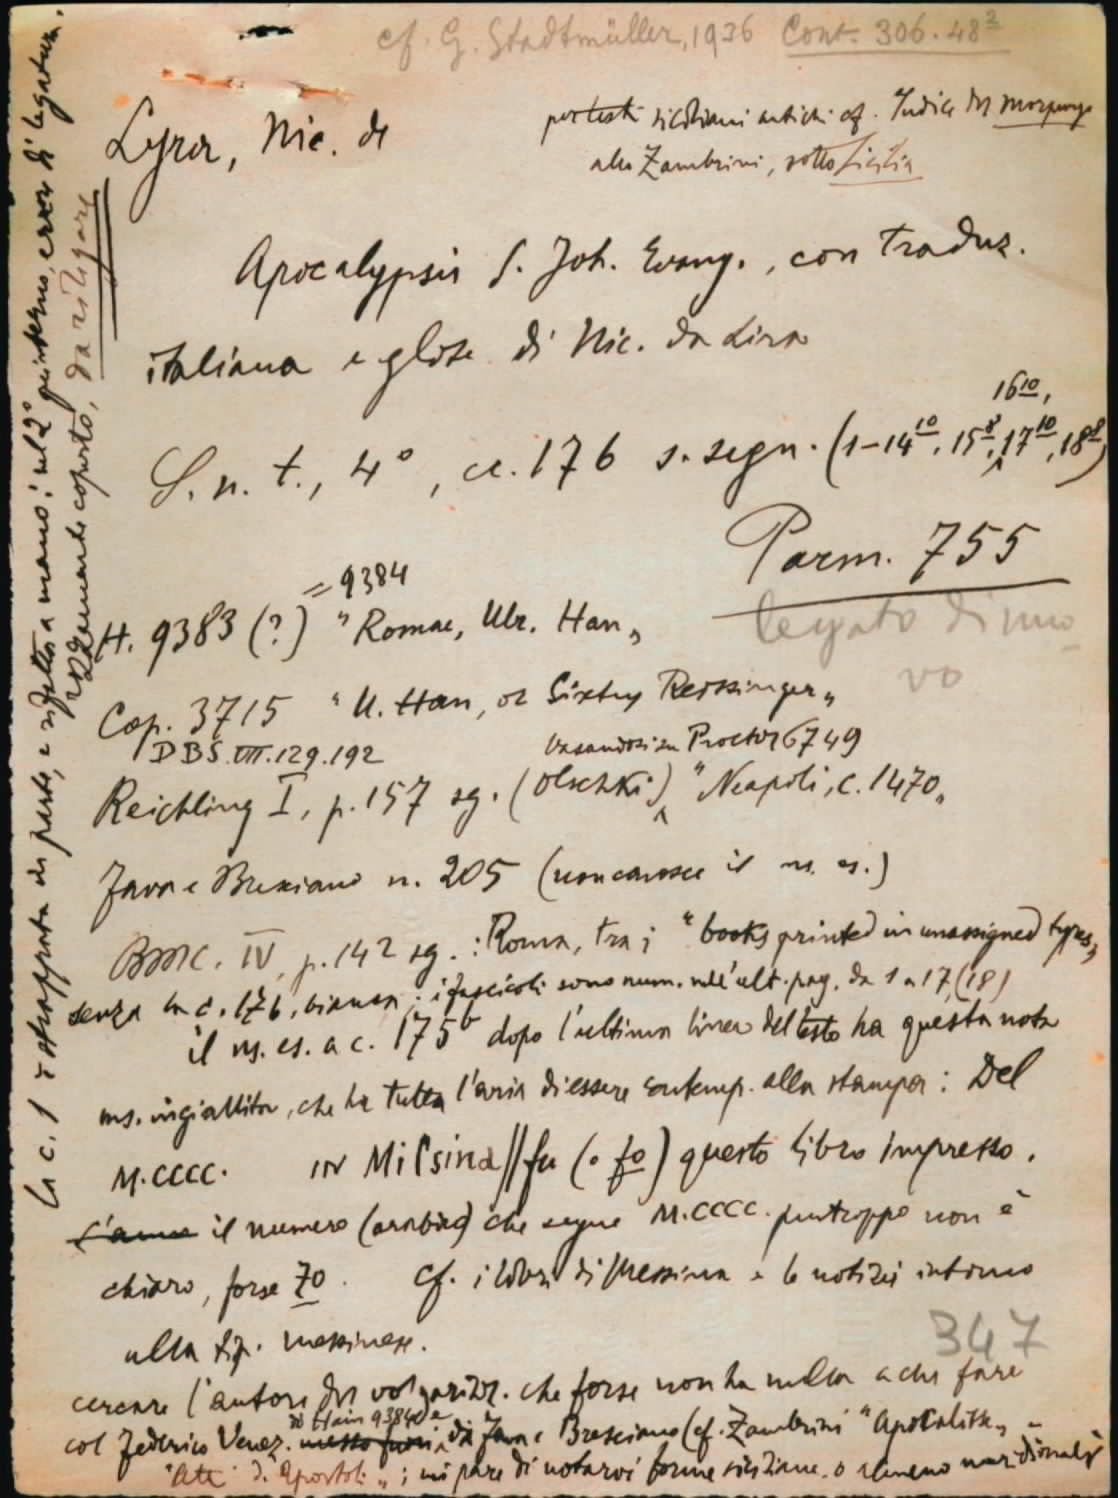 cf. G. Stadtmüller, 1936 Cont. 306.48²
per testi siciliani antichi cf. Indice del Morpurgo
allo Zambrini, sotto Sicilia
Lyra, Nic. de
Apocalypsis S. Joh. Evang., con traduz.
italiana e glose di Nic. da Lira
16¹⁰,
S. n. t., 4°, cc. 176 s. segn. (1-14¹⁰, 15⁸, 17¹⁰, 18⁸)
Parm. 755
legato di nuo-
vo
= 9384
H. 9383 (?) "Romae, Ulr. Han„
Cop. 3715 "U. Han, or Sixtus Reissinger„
DBS. VII.129.192
basandosi su Proctor 6749
Reichling I, p. 157 sg. (Olschki) "Neapoli, c. 1470„
Fava e Bresciano n. 205 (non conosce il ns. es.)
BMC. IV, p. 142 sg.: Roma, tra i "books printed in unassigned types„
senza la c. 176, bianca; i fascicoli sono num. nell'ult. pag. da 1 a 17 (18)
il ns. es. a c. 175ᵇ dopo l'ultima linea del testo ha questa nota
ms. ingiallita, che ha tutta l'aria di essere contemp. alla stampa: Del
M.CCCC. in Missina || fu (o fo) questo libro impresso.
il numero (arabico) che segue M.CCCC. purtroppo non è
chiaro, forse 70. Cf. i libri di Messina e le notizie intorno
alla tip. messinese.
347
cercare l'autore del volgarizz. che forse non ha nulla a che fare
di Hain 9384 e
col Federico Venez. messo fuori da Fava e Bresciano (cf. Zambrini "Apocalisse„ e
"Atti di Apostoli„; mi pare di notarvi forme siciliane o almeno meridionali)
La c. 1 è strappata in parte, e rifatta a mano; nel 2° quinterno, error di legatura.
da rilegare